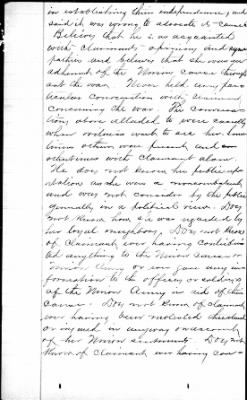 in establishing their independence, and
said it was wrong to advocate it - cause
Believes that he is so acquainted
with claimants opinions and sym
pathies and believes that she was an
adherent of the Union cause through
out the war. Never held any par
ticular conversation with claimant
concerning the war. The conversa
tions above alluded to were usually
when witness went to see her
others were present and
with claimant alone.
He does not know her public rep
utation as she was a
and was not considered by the public
generally in a political view. Does
not know how she was regarded by
her loyal neighbors, Does not know
of Claimant ever having contribu
ted anything to the Union cause or
Union Army or ever gave any in
formation to the officers or soldiers
of the Union Army in aid of their
cause. Does not know of claimant
ever having been molested threatened
or injured in anyway on account
of her Union sentiments. Does not
know of claimant ever having con-